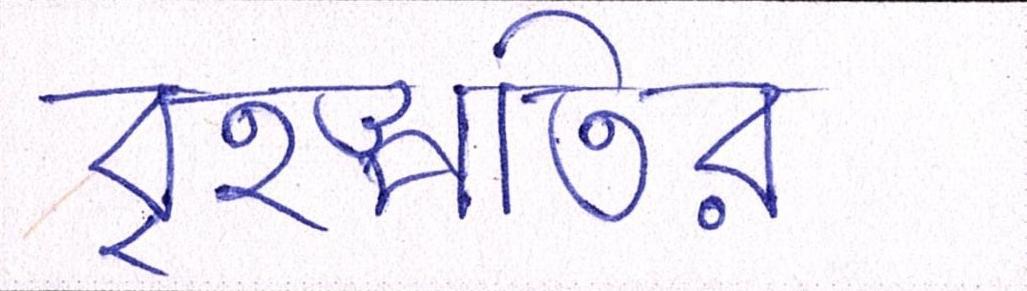 বৃহস্পতির